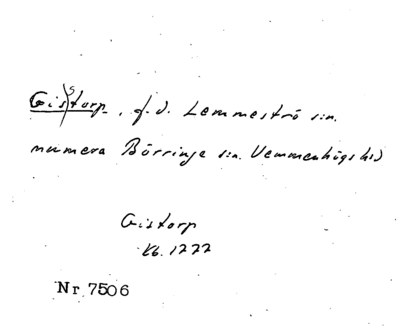 Gisstorp, f.d. Lemmeströ sn.
numera Börringe sn. Vemmenhögs hd
Gistorp
Kb. 1777
Nr 7506